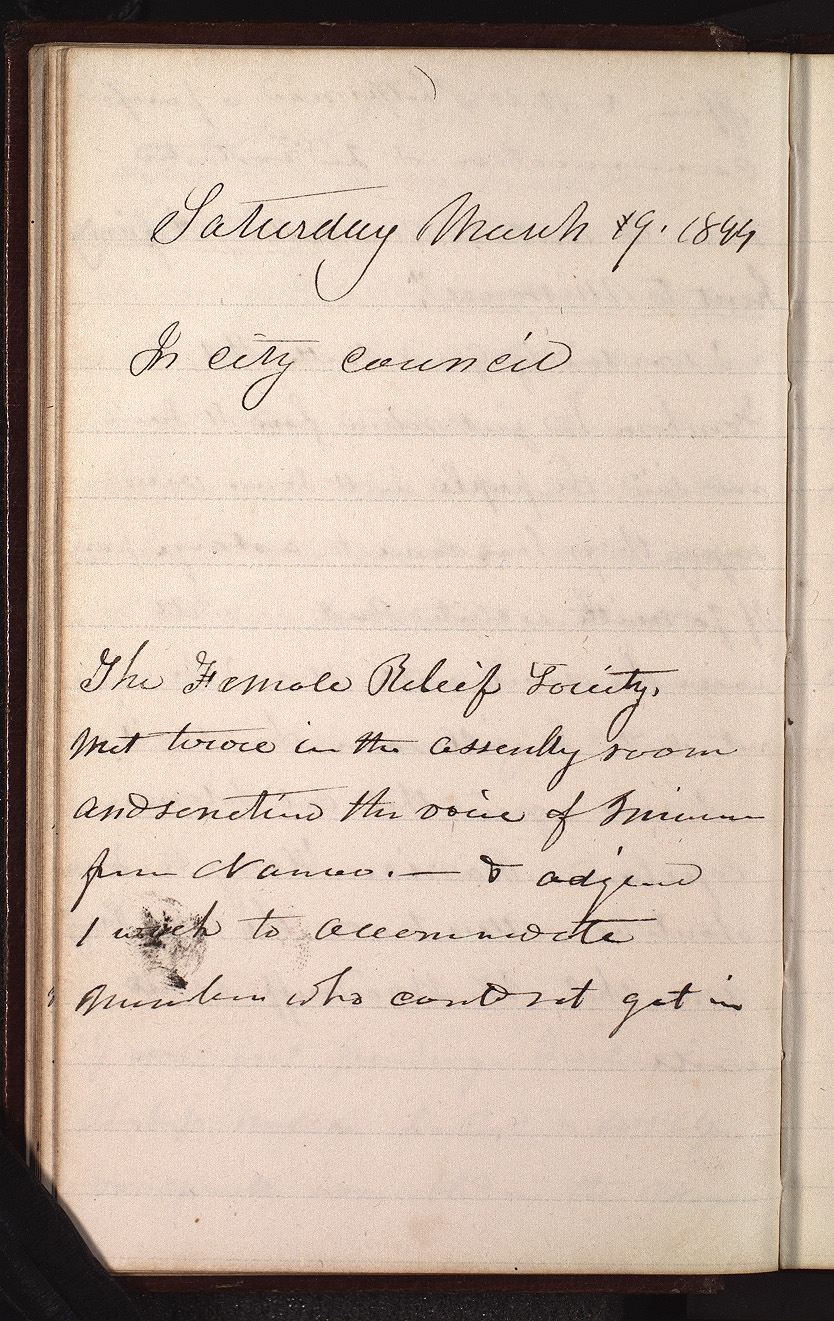 Saturday March 9. 1844
In city council
The Female Releif Society.
met twice in the assembly room
and sanctiond the voice of Innocence
from Nauvoo. — & adjond
1 week to accommodate
Members who could not get in